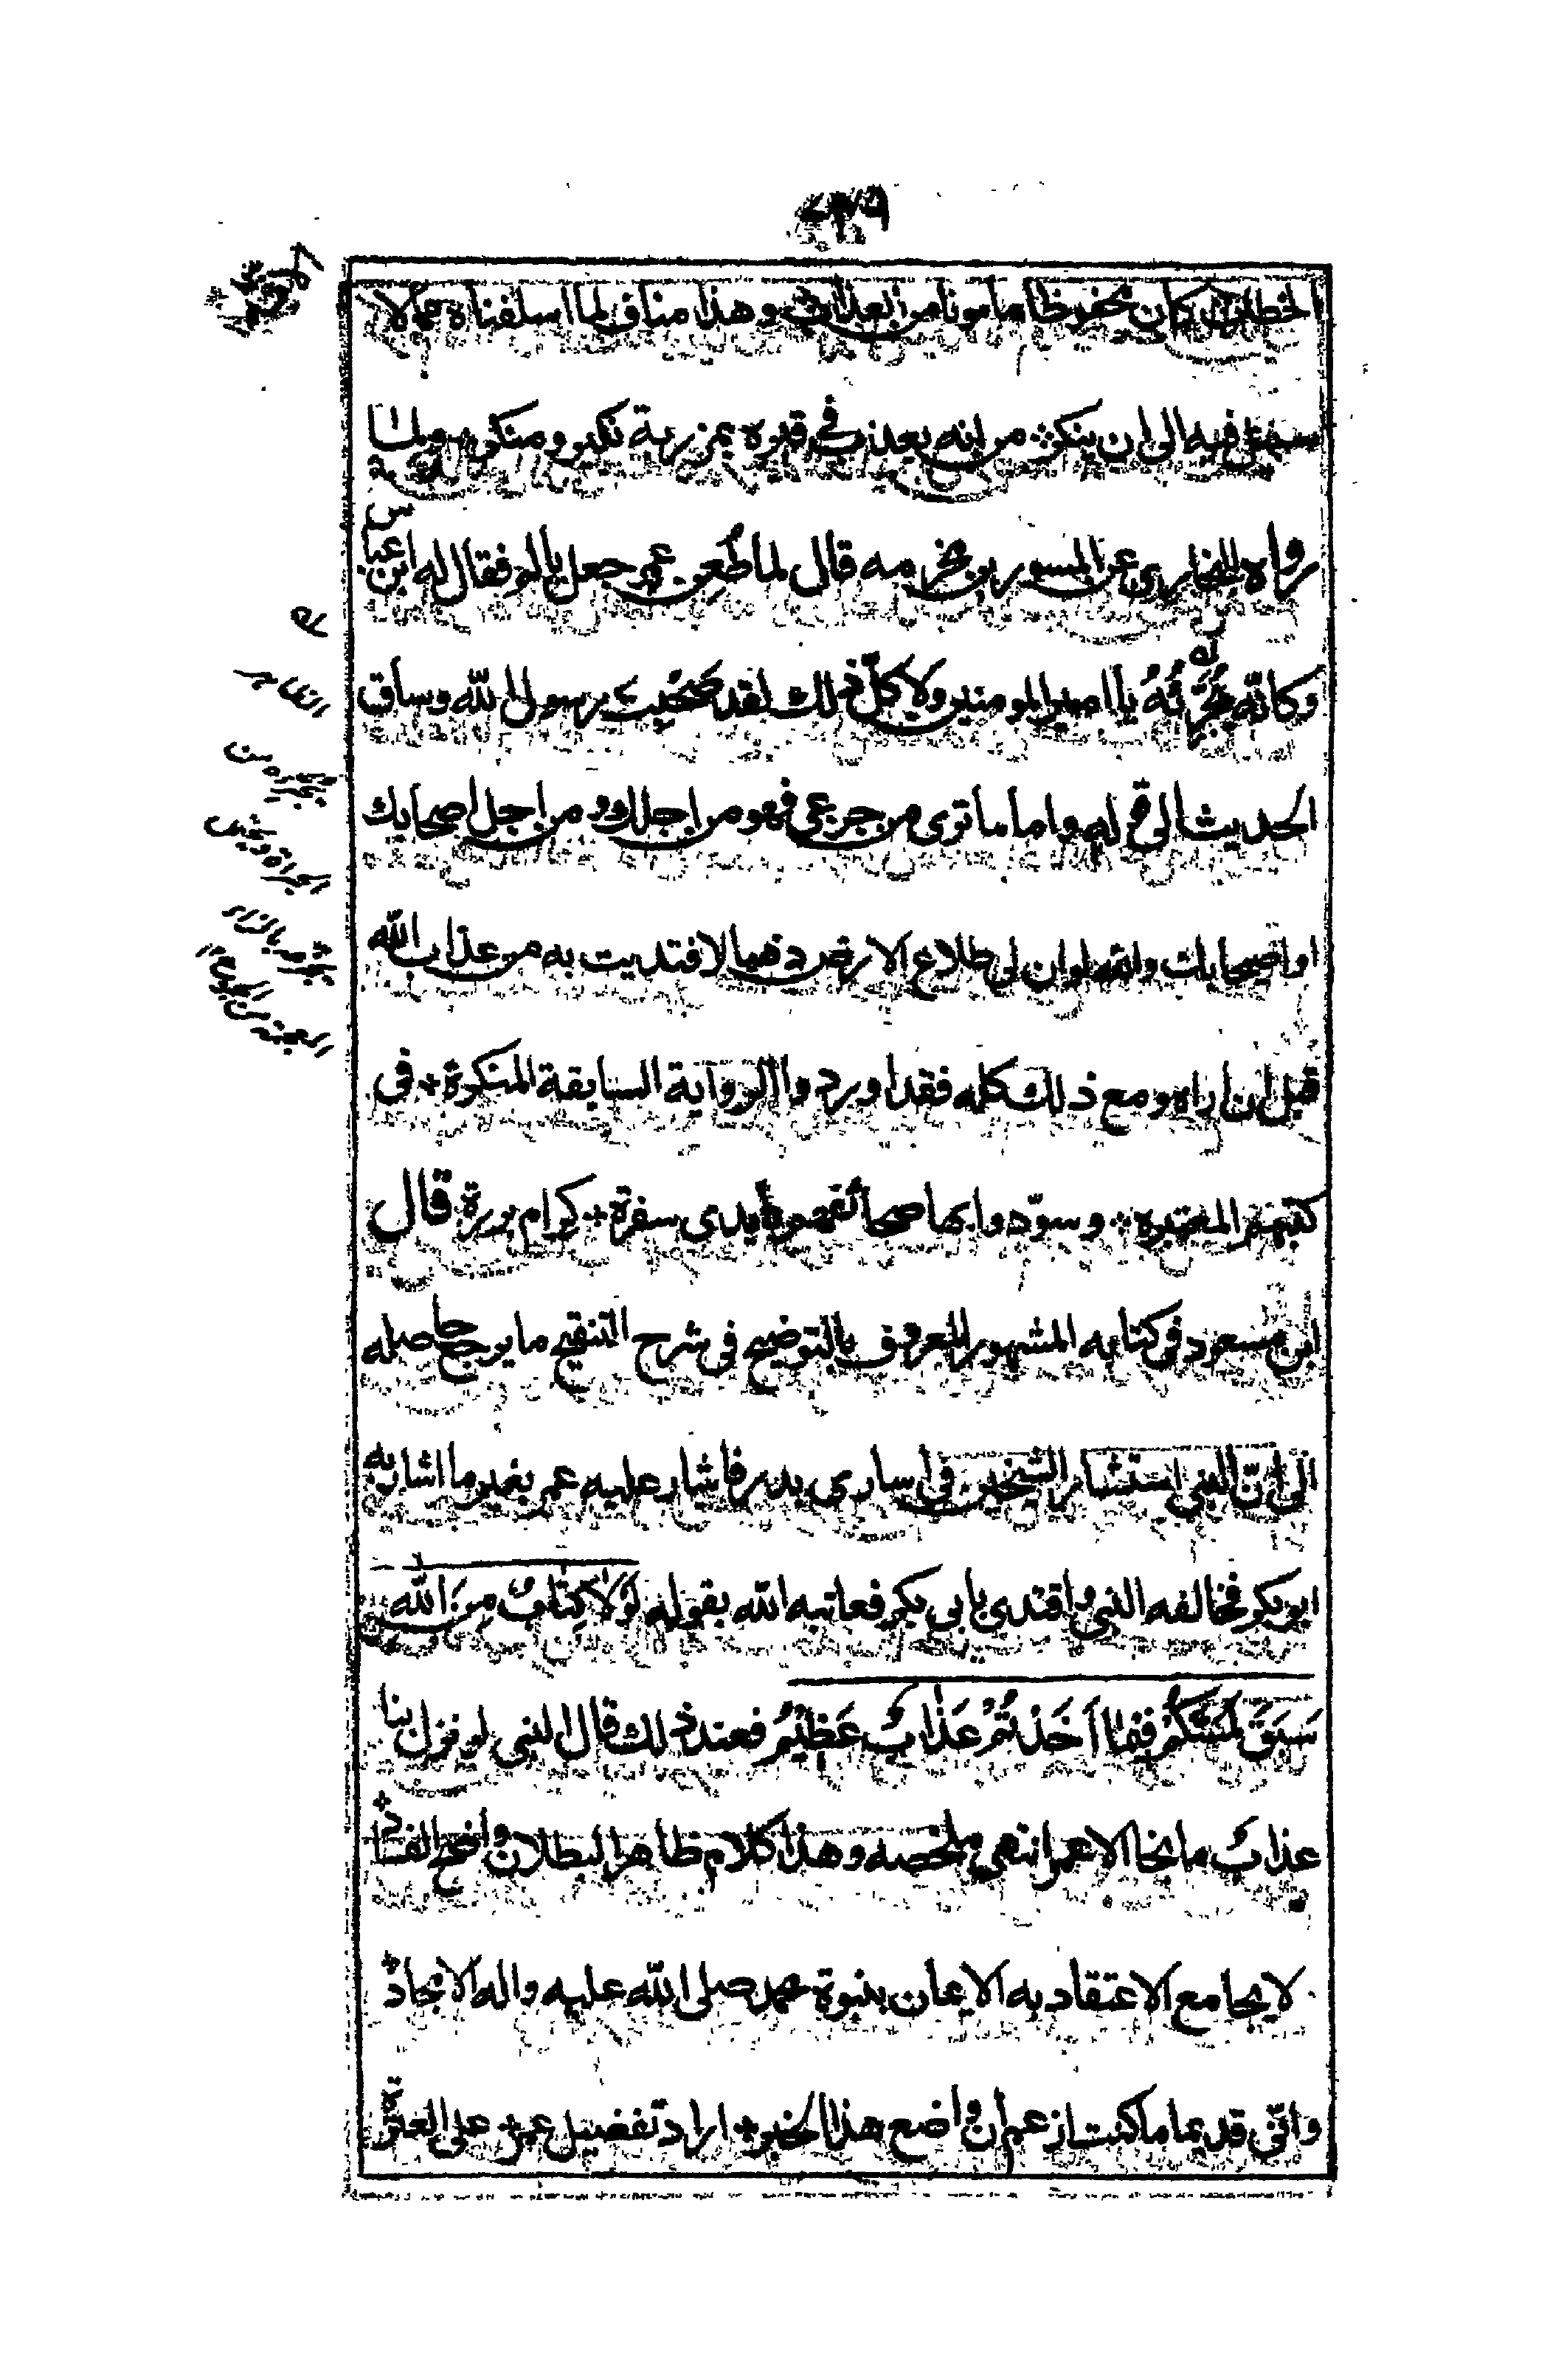 الخطاب كان محفوظا مامونا من العذاب وهذا مناف لما اسلفناه مما لا
فيه الى ان ينكث من انه يعذب في قبره بمزربة نكير ومنكر ولما
رواه البخاري عن المسور بن مخرمه قال لما طعن عمر جعل يالم فقال له ابن عباس
وكانّه يُجَزِّعُهُ يا امير المومنين ولا كلّ ذلك لقد صحبت رسول الله وساق
الحديث الى قوله واما ما ترى من جزعي فهو من اجلك ومن اجل اصحابك
او اصحابك والله لو ان لي طلاع الارض ذهبا لافتديت به من عذاب الله
قبل ان اراه ومع ذلك كله فقد اوردوا الرواية السابقة المنكرة في
كتبهم المعتبره وسوّدوا بها صحائفهم بايدى سفرة كرام بررة قال
ابن مسعود في كتابه المشهور المعروف بالتوضيح في شرح التنقيح ما يرجع حاصله
الى انّ النبي استشار الشيخين في اسارى بدر فاشار عليه عمر بغير ما اشار به
ابو بكر فخالفه النبي واقتدى بابي بكر فعاتبه الله بقوله لَوْلَا كِتَابٌ مِنَ الله
سَبَقَ لَمَسَّكُمْ فِيْمَا اَخَذْتُمْ عَذَابٌ عَظِيْمٌ فعند ذلك قال النبي لو نزل بنا
عذابٌ ما نجا الا عمر انتهى ملخصه وهذا كلام ظاهر البطلان واضح الفساد
لا يجامع الاعتقاد به الايمان بنبوة محمد صلى الله عليه واله الامجاد
وانّي قديما ما كنت ازعم ان واضع هذا الخبر اراد تفضيل عمر على العترة